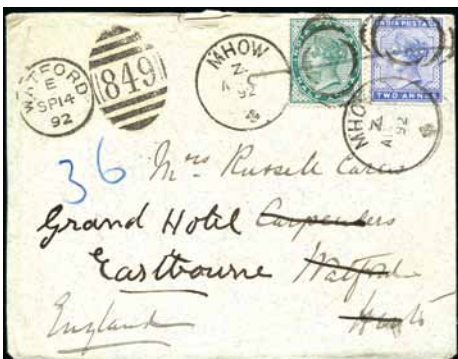 WATFORD
E
SP14
92
849
MHOW
Z
92
INDIA POSTAGE
TWO ANNAS
MHOW
Z
92
36
Mrs Russell Carew
Grand Hotel Carpenders
Eastbourne Watford
England Herts